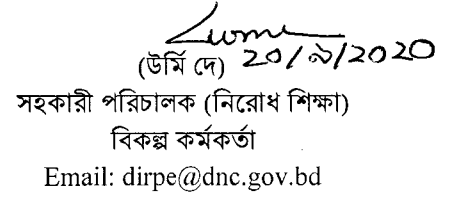 (উর্মি দে) ২০/৯/২০২০
সহকারী পরিচালক (নিরোধ শিক্ষা)
বিকল্প কর্মকর্তা
Email: dirpe@dnc.gov.bd